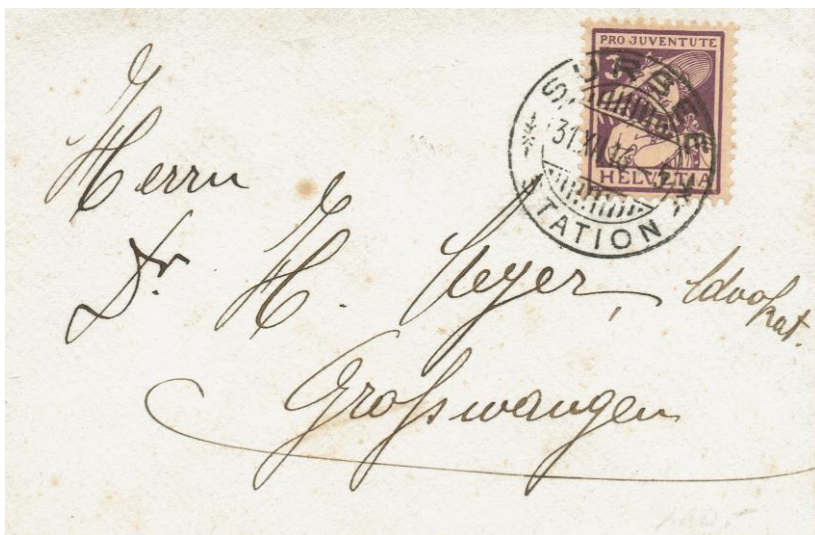 PRO JUVENTUTE
3
HELVETIA
SURSEE
31.XII.16
STATION
Herrn
Dr. H. Advokat.
Großwangen